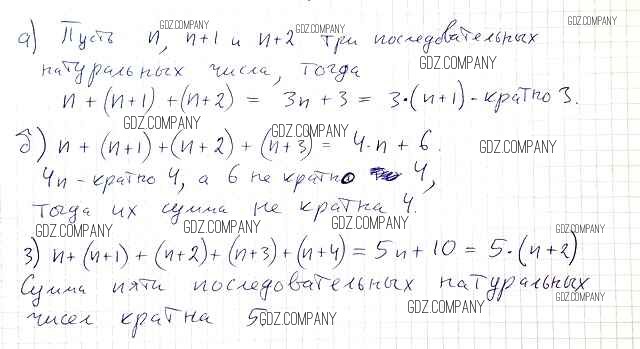 а) Пусть n, n+1 и n+2 три последовательных
натуральных числа, тогда
n + (n+1) + (n+2) = 3n + 3 = 3·(n+1) - кратно 3.
б) n + (n+1) + (n+2) + (n+3) = 4·n + 6.
4n - кратно 4, а 6 не кратно 4,
тогда их сумма не кратна 4.
3) n + (n+1) + (n+2) + (n+3) + (n+4) = 5n + 10 = 5·(n+2)
Сумма пяти последовательных натуральных
чисел кратна 5
GDZ.COMPANY
GDZ.COMPANY
GDZ.COMPANY
GDZ.COMPANY
GDZ.COMPANY
GDZ.COMPANY
GDZ.COMPANY
GDZ.COMPANY
GDZ.COMPANY
GDZ.COMPANY
GDZ.COMPANY
GDZ.COMPANY
GDZ.COMPANY
GDZ.COMPANY